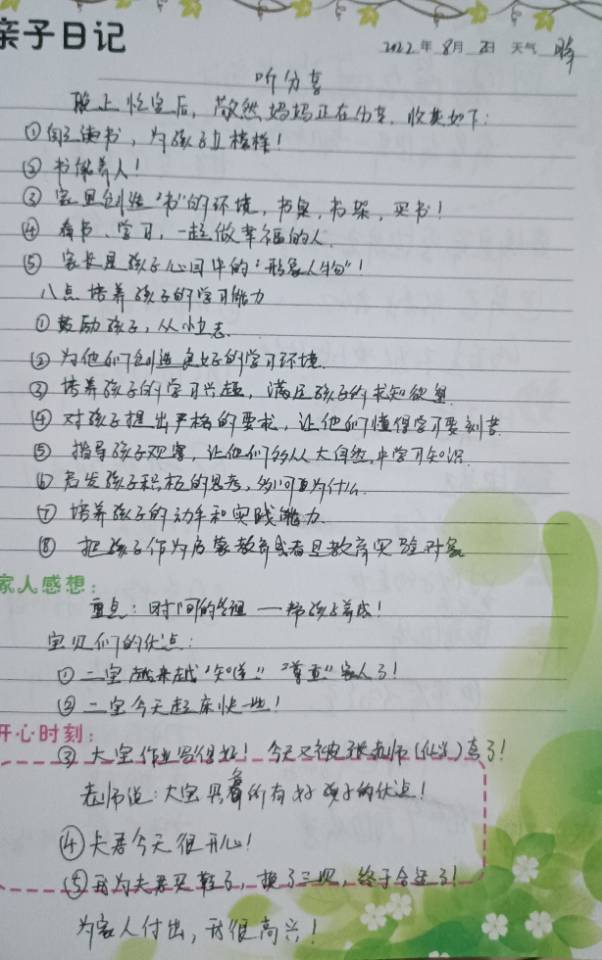 亲子日记
2022年 8月 日 天气 晴
听分享
晚上忙完后，欣然妈妈正在分享，收集如下：
①自己读书，为孩子立榜样！
②书保养人！
③家里创造“书”的环境，书桌，书架，买书！
④看书、学习，一起做幸福的人
⑤家长是孩子心目中的“形象人物”！
八点培养孩子的学习能力
①鼓励孩子，从小立志
②为他们创造良好的学习环境.
③培养孩子的学习兴趣，满足孩子的求知欲望
④对孩子提出严格的要求，让他们懂得学习要刻苦
⑤指导孩子观察，让他们多从大自然中学习知识.
⑥启发孩子积极的思考，多问为什么.
⑦培养孩子的动手和实践能力.
⑧把孩子作为启蒙教育或者是教育实验对象
家人感想：
重点：时间的管理 — 帮孩子养成！
宝贝们的优点：
①二宝越来越“知道”“尊重”家人了！
②二宝今天起床快些！
开心时刻：
③大宝作业写得好！今天又被张老师(化学)表了！
老师说：大宝具备所有好孩子的优点！
④夫君今天很开心！
⑤我为夫君买鞋了，换了三四，终于合适了！
为家人付出，我很高兴！